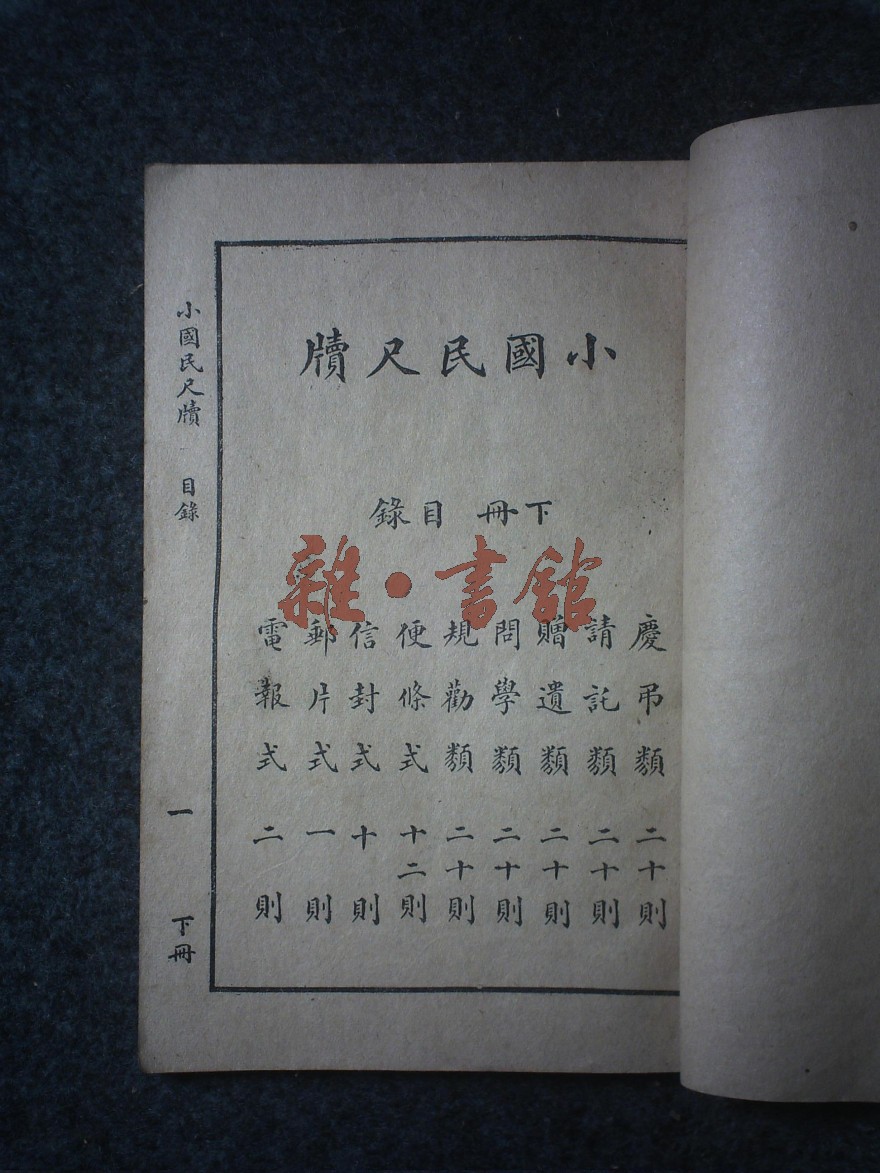 小國民尺牘
下冊 目錄
慶弔類 二十則
請託類 二十則
贈遺類 二十則
問學類 二十則
規勸類 二十則
便條式 十二則
信封式 十則
郵片式 一則
電報式 二則
小國民尺牘 目錄 一 下冊
雜·書館